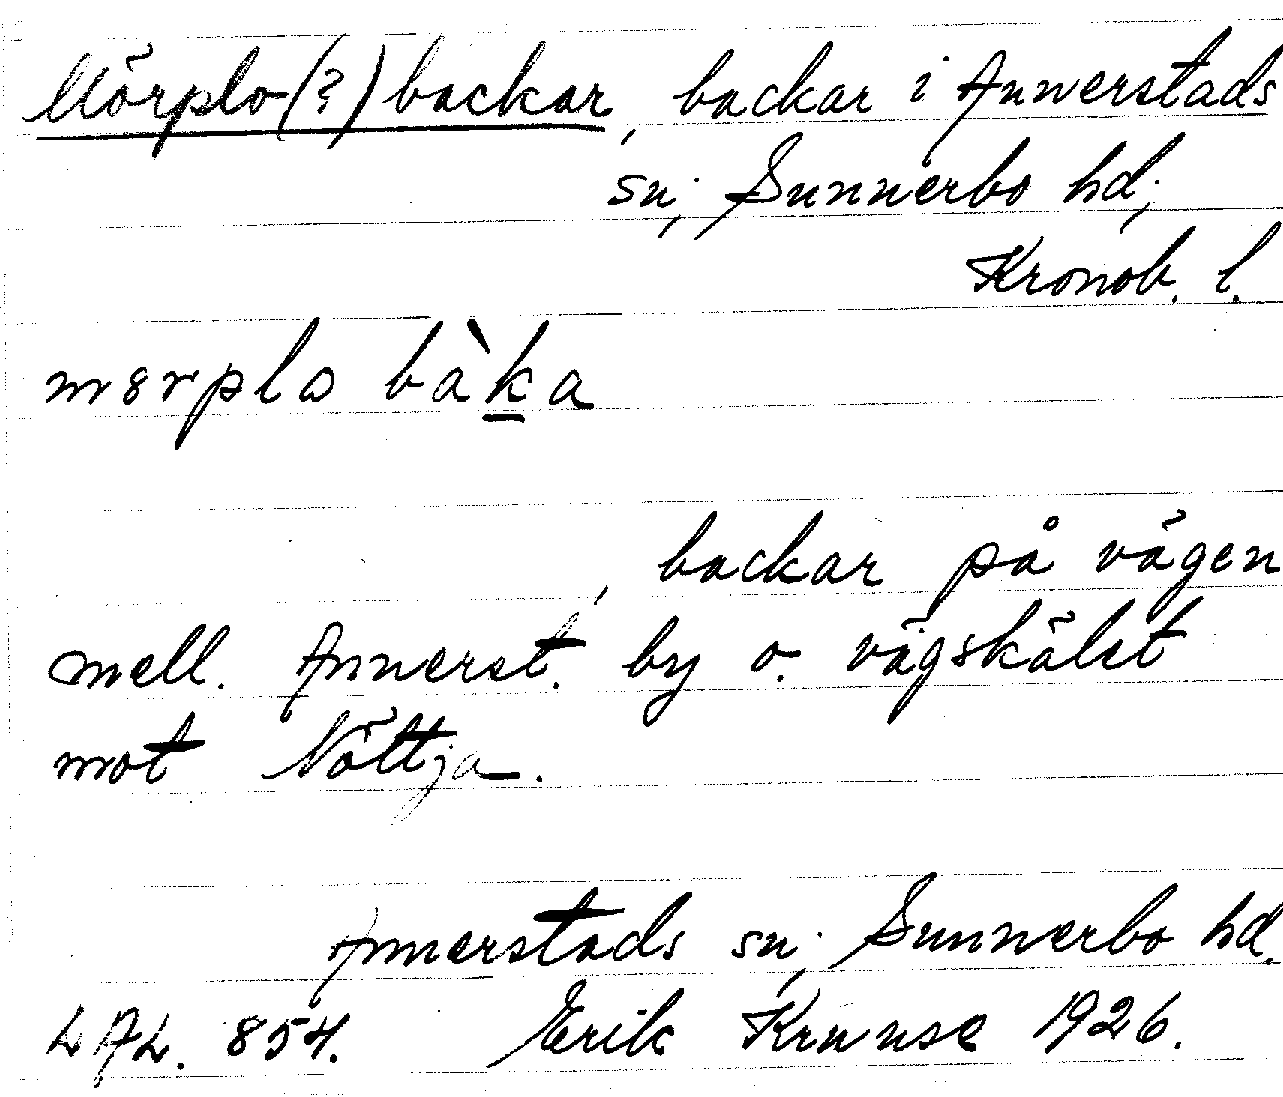 Mörplo(?)backar, backar i Annerstads
sn; Sunnerbo hd;
Kronob. l.
mɵrplɷ bàka
, backar på vägen
mell. Annerst. by o. vägskälet
mot Nöttja.
Annerstads sn; Sunnerbo hd.
LAL. 854. Erik Kruuse 1926.